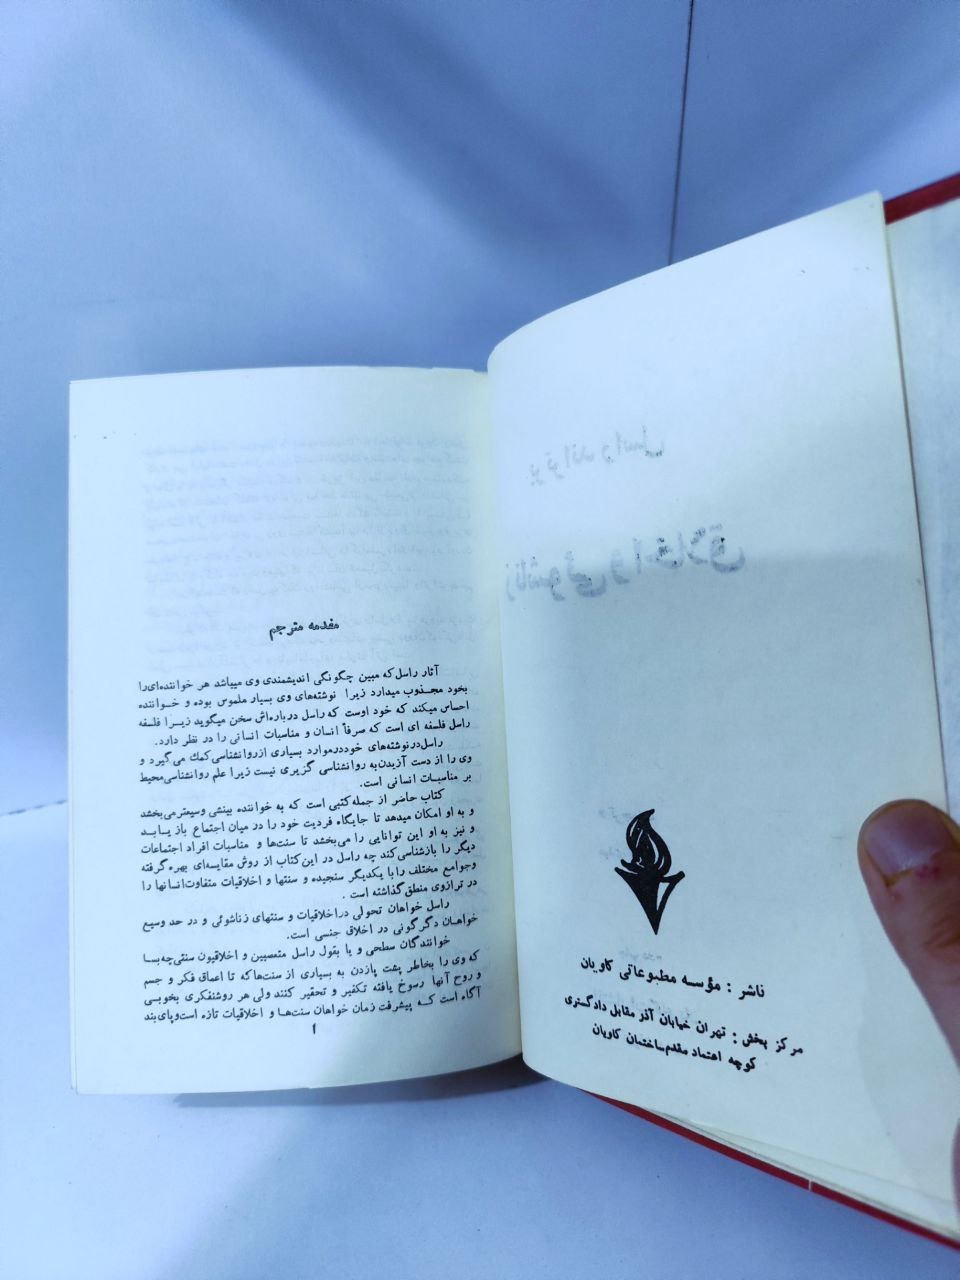 ناشر : مؤسسه مطبوعاتی کاویان
مرکز پخش : تهران خیابان آذر مقابل دادگستری
کوچه اعتماد مقدم ساختمان کاویان
مقدمه مترجم
آثار راسل که مبین چگونگی اندیشمندی وی میباشد هر خواننده‌ای را
بخود مجذوب میدارد زیرا نوشته‌های وی بسیار ملموس بوده و خواننده
احساس میکند که خود اوست که راسل درباره‌اش سخن میگوید زیرا فلسفه
راسل فلسفه ای است که صرفاً انسان و مناسبات انسانی را در نظر دارد.
راسل در نوشته‌های خود در موارد بسیاری از روانشناسی کمک می‌گیرد و
وی را از دست آزیدن به روانشناسی گزیری نیست زیرا علم روانشناسی محیط
بر مناسبات انسانی است.
کتاب حاضر از جمله کتبی است که به خواننده بینشی وسیعتر می‌بخشد
و به او امکان میدهد تا جایگاه فردیت خود را در میان اجتماع باز یابد
و نیز به او این توانایی را می‌بخشد تا سنت‌ها و مناسبات افراد اجتماعات
دیگر را بازشناسی کند چه راسل در این کتاب از روش مقایسه‌ای بهره گرفته
و جوامع مختلف را با یکدیگر سنجیده و سنتها و اخلاقیات متفاوت انسانها را
در ترازوی منطق گذاشته است .
راسل خواهان تحولی در اخلاقیات و سنتهای زناشوئی و در حد وسیع
خواهان دگرگونی در اخلاق جنسی است.
خوانندگان سطحی و یا بقول راسل متعصبین و اخلاقیون سنتی چه بسا
که وی را بخاطر پشت پا زدن به بسیاری از سنت‌ها که تا اعماق فکر و جسم
و روح آنها رسوخ یافته تکفیر و تحقیر کنند ولی هر روشنفکری بخوبی
آگاه است که پیشرفت زمان خواهان سنت‌ها و اخلاقیات تازه است و پای بند
۱